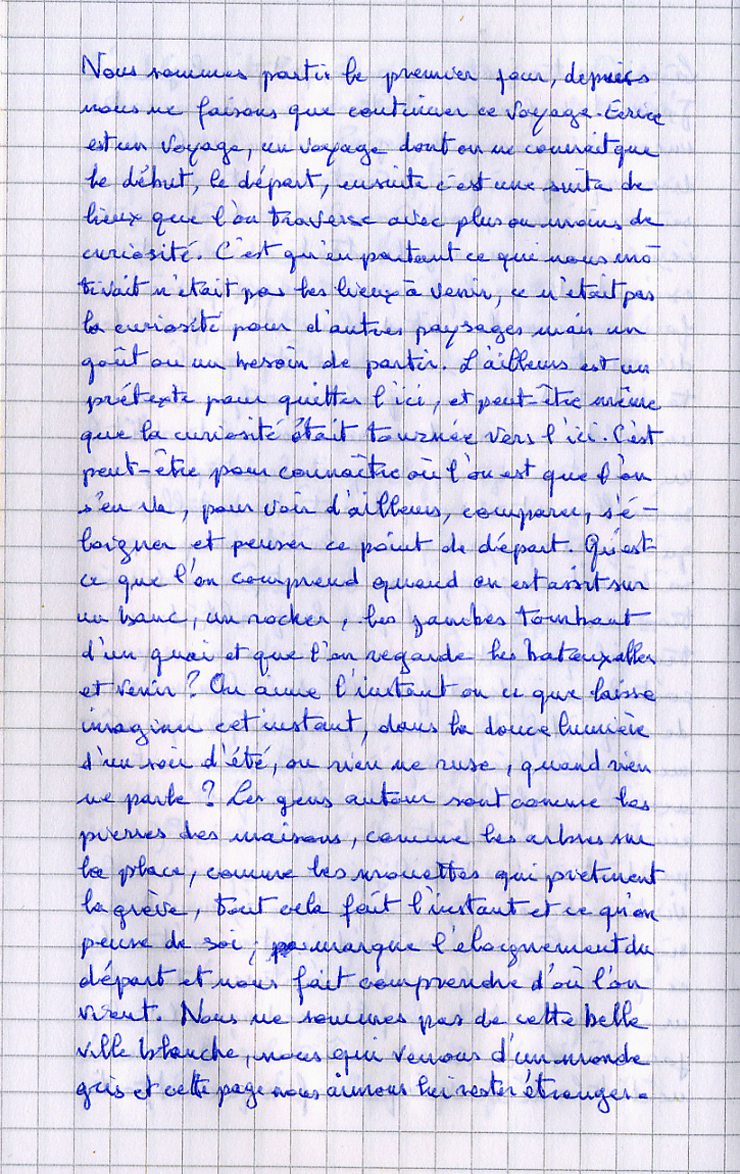 Nous sommes partis le premier jour, depuis
nous ne faisons que continuer ce voyage. Ecrire
est un voyage, un voyage dont on ne connait que
le début, le départ, ensuite c'est une suite de
lieux que l'on traverse avec plus ou moins de
curiosité. C'est qu'en partant ce qui nous mo
tivait n'était pas les lieux à venir, ce n'était pas
la curiosité pour d'autres paysages mais un
goût ou un besoin de partir. L'ailleurs est un
prétexte pour quitter l'ici, et peut-être même
que la curiosité était tournée vers l'ici. C'est
peut-être pour connaître où l'on est que l'on
s'en va, pour voir d'ailleurs, comparer, s'é-
loigner et penser ce point de départ. Qu'est-
ce que l'on comprend quand on est assis sur
un banc, un rocher, les jambes tombant
d'un quai et que l'on regarde les bateaux aller
et venir ? On aime l'instant ou ce que laisse
imaginer cet instant, dans la douce lumière
d'un soir d'été, où rien ne ruse, quand rien
ne parle ? Les gens autour sont comme les
pierres des maisons, comme les arbres sur
la place, comme les mouettes qui piétinent
la grève, tout cela fait l'instant et ce qu'on
pense de soi ; marque l'éloignement du
départ et nous fait comprendre d'où l'on
vient. Nous ne sommes pas de cette belle
ville blanche, nous qui venons d'un monde
gris et cette page nous aimons lui rester étranger.